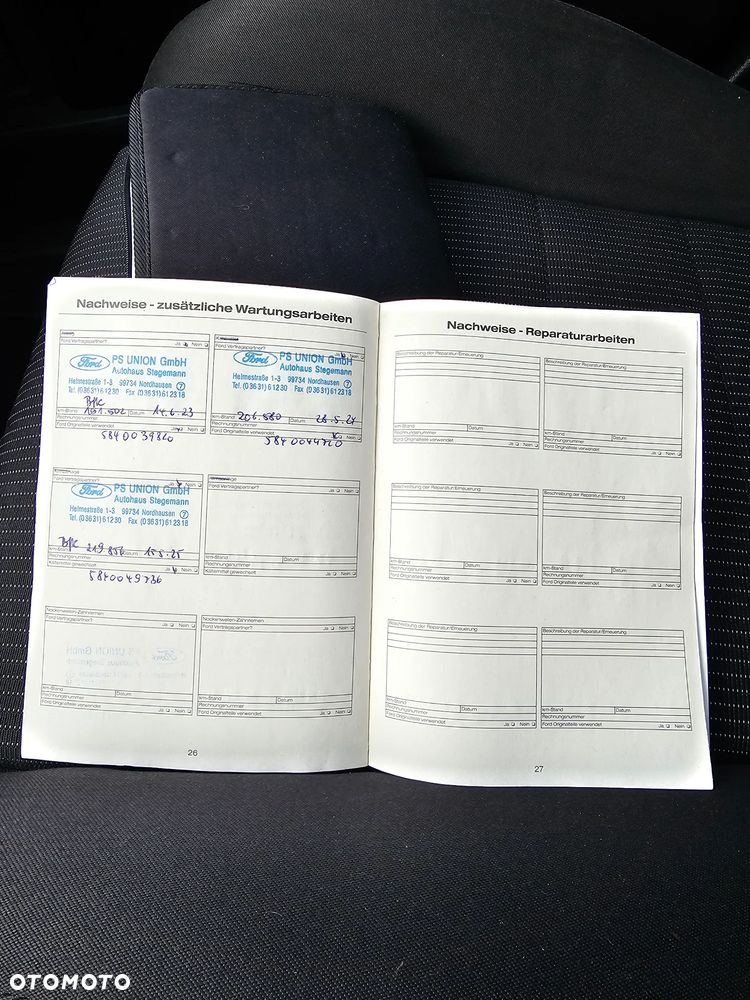 Nachweise - zusätzliche Wartungsarbeiten
Ford Vertragspartner? Ja Nein
Ford PS UNION GmbH
Autohaus Stegemann
Helmestraße 1-3 99734 Nordhausen 7
Tel. (03631) 61230 Fax (03631) 612318
km-Stand Datum 14.6.23
Rechnungsnummer
Ford Originalteile verwendet Ja Nein
5840039820
Ja Nein
Ford PS UNION GmbH
Autohaus Stegemann
Helmestraße 1-3 99734 Nordhausen 7
Tel. (03631) 61230 Fax (03631) 612318
km-Stand 206.580 Datum 28.5.24
Rechnungsnummer
Ford Originalteile verwendet Ja Nein
5840044720
Ja Nein
Ford PS UNION GmbH
Autohaus Stegemann
Helmestraße 1-3 99734 Nordhausen 7
Tel. (03631) 61230 Fax (03631) 612318
km-Stand 219.856 Datum 15.5.25
Rechnungsnummer
Kältemittel gewechselt Ja Nein
5840049736
Ford Vertragspartner? Ja Nein
km-Stand Datum
Rechnungsnummer
Kältemittel gewechselt Ja Nein
Nockenwellen-Zahnriemen
Ford Vertragspartner? Ja Nein
km-Stand Datum
Rechnungsnummer
Ford Originalteile verwendet Ja Nein
Nockenwellen-Zahnriemen
Ford Vertragspartner? Ja Nein
km-Stand Datum
Rechnungsnummer
Ford Originalteile verwendet Ja Nein
26
Nachweise - Reparaturarbeiten
Beschreibung der Reparatur/Erneuerung
km-Stand Datum
Rechnungsnummer
Ford Originalteile verwendet Ja Nein
Beschreibung der Reparatur/Erneuerung
km-Stand Datum
Rechnungsnummer
Ford Originalteile verwendet Ja Nein
Beschreibung der Reparatur/Erneuerung
km-Stand Datum
Rechnungsnummer
Ford Originalteile verwendet Ja Nein
Beschreibung der Reparatur/Erneuerung
km-Stand Datum
Rechnungsnummer
Ford Originalteile verwendet Ja Nein
Beschreibung der Reparatur/Erneuerung
km-Stand Datum
Rechnungsnummer
Ford Originalteile verwendet Ja Nein
Beschreibung der Reparatur/Erneuerung
km-Stand Datum
Rechnungsnummer
Ford Originalteile verwendet Ja Nein
27
OTOMOTO